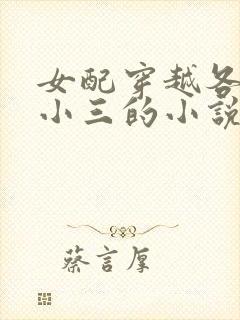 女配穿越各
小三的小說
蔡言厚